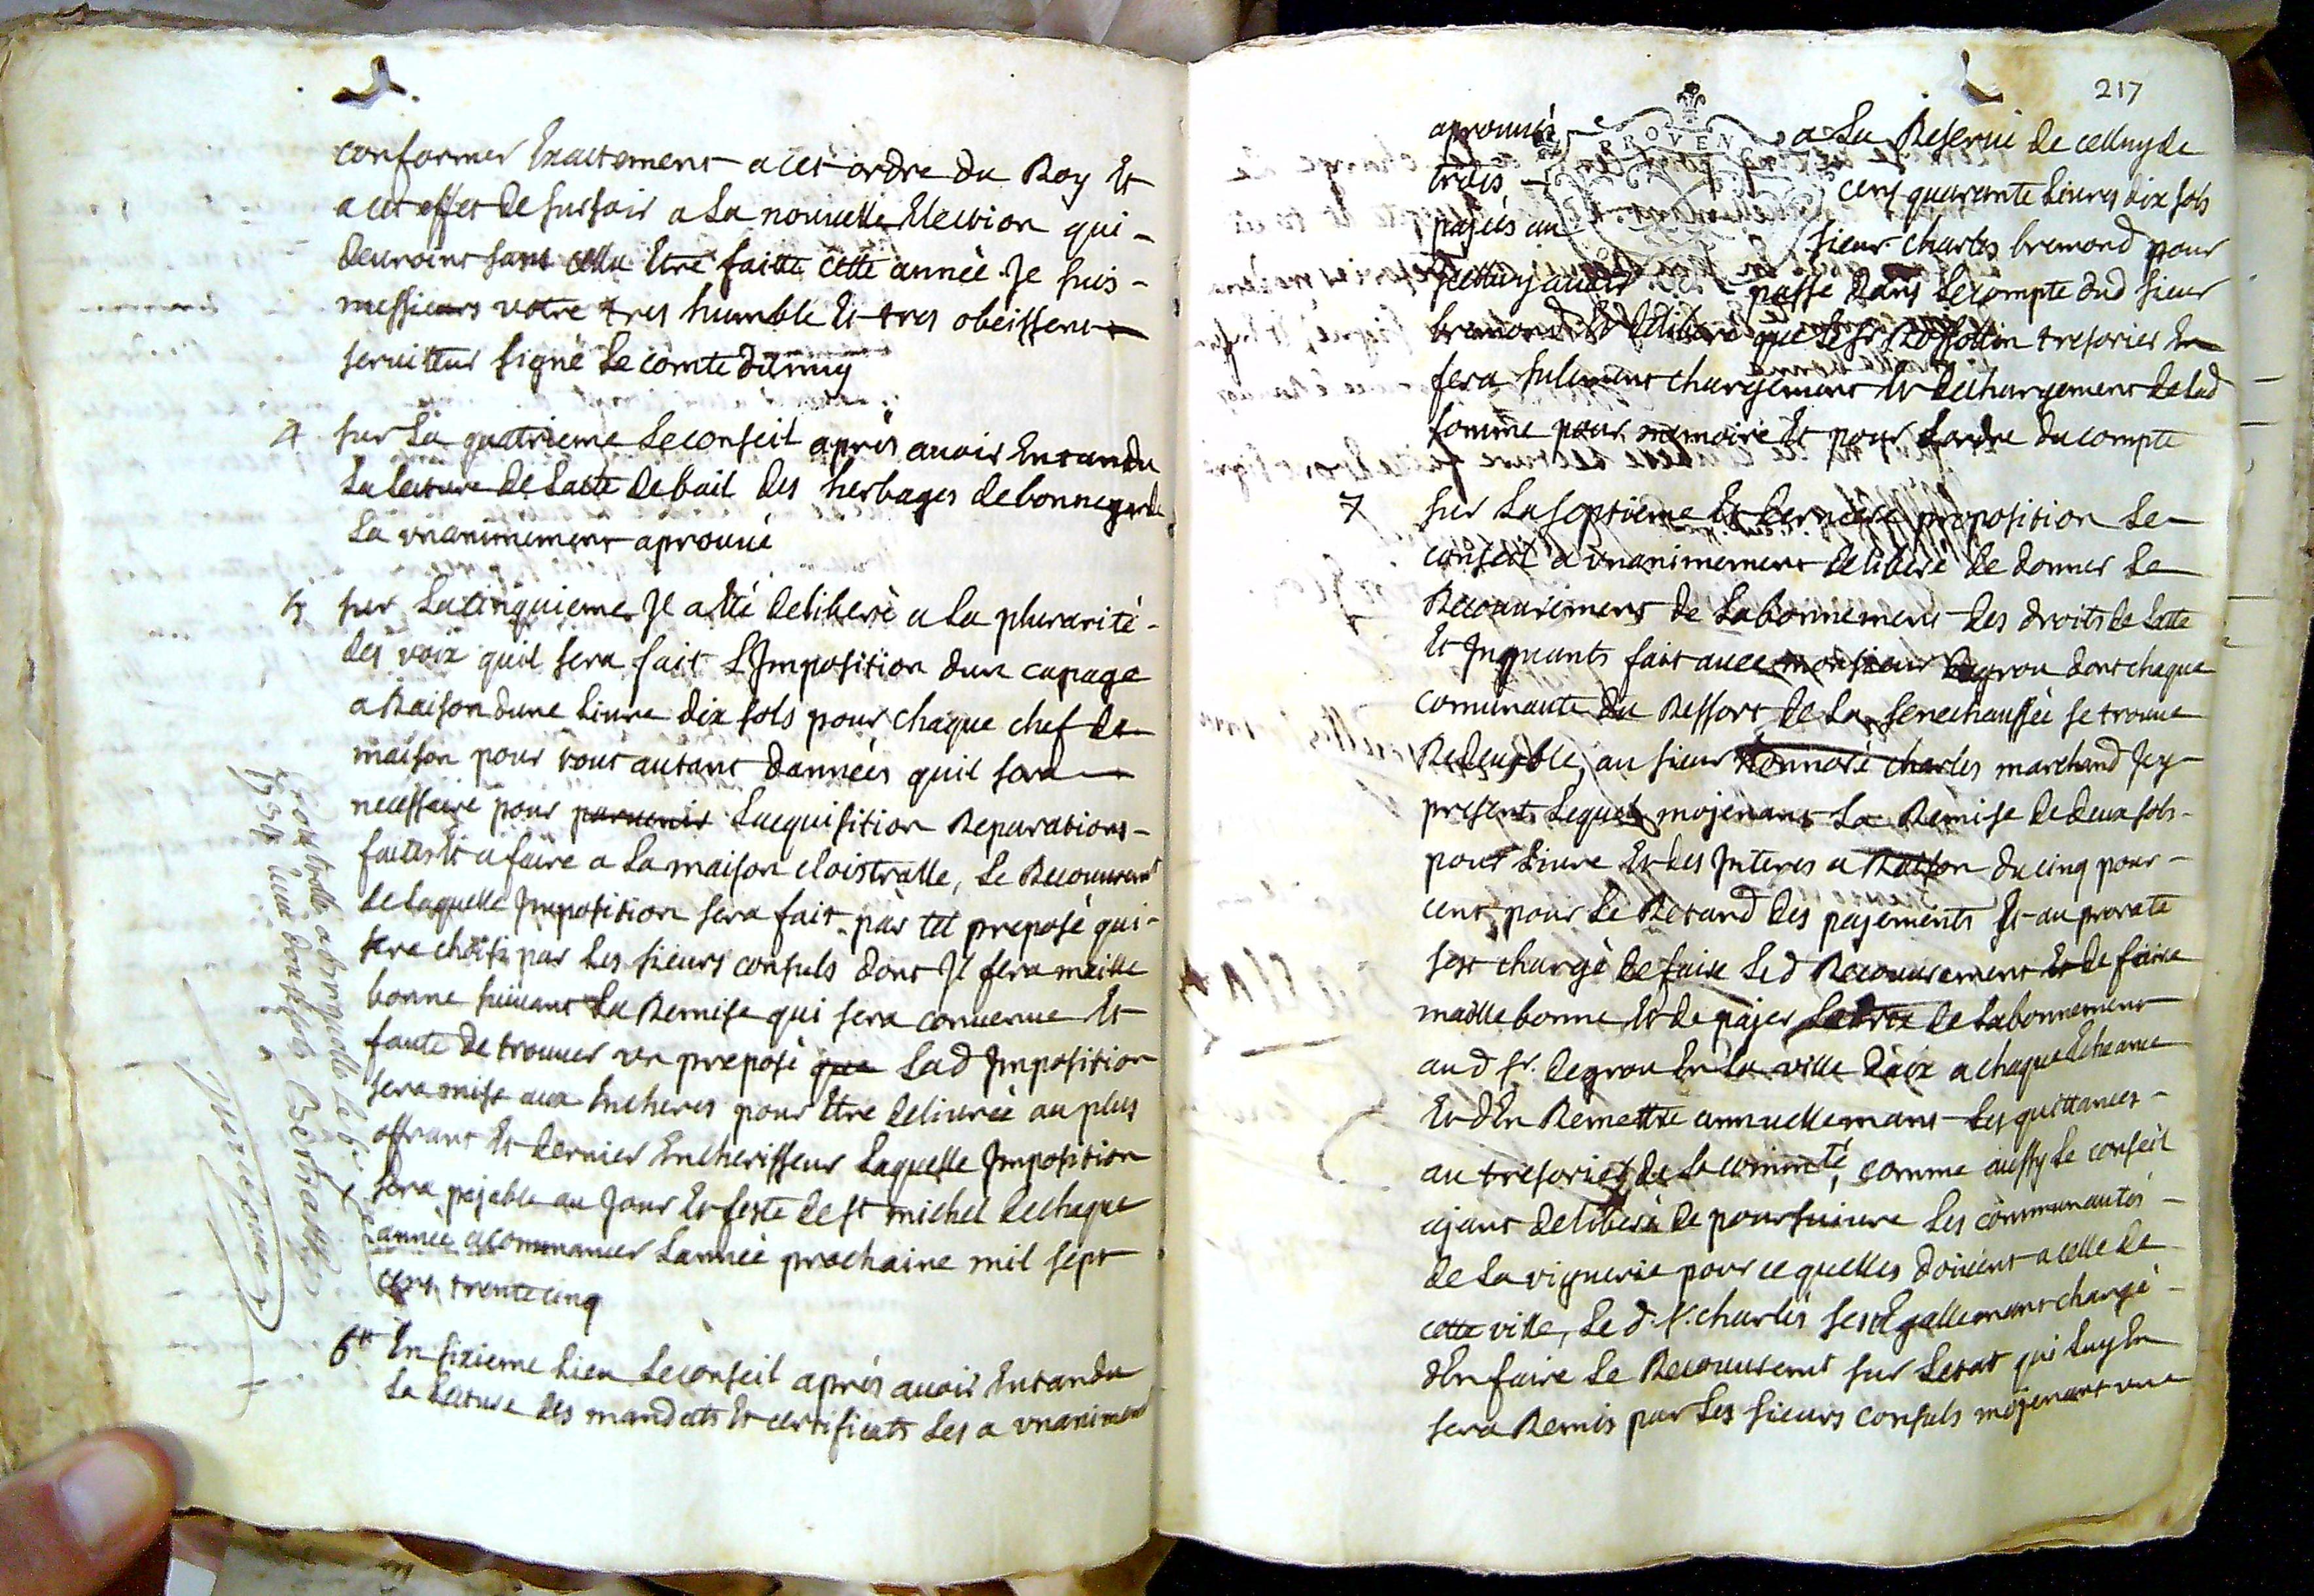 conformer Exactement a cet ordre du Roy Et
a cet effet de sursoir a La nouvelle Election qui
devroint sans cella Etre faitte cette année. Je suis
messieurs votre tres humble Et tres obeissent
serviteur signé Le comte dumuy
4 sur La quatrieme Le conseil aprés avoir Entandu
La lecture de Lacte de bail des herbages de bonnegarde
La vnanimement aprouvé
5 sur La cinquieme Jl a Eté deliberé a La plurarité
des voix quil sera fait L'Jmposition dun capage
a Raison dune Livre dix sols pour chaque chef de
maison pour tout autant dannées quil sera
necessaire pour parvenir Lacquisition Reparations
faites Et a faire a La maison cloistralle, Le Recouvremt
de laquelle Jmposition sera fait par tel preposé qui
sera choisi par Les sieurs consuls dont Jl sera maille
bonne suivant La Remise qui sera convenue Et
faute de trouver vn preposé que Lad Jmposition
sera mise aux Encheres pour Etre delivrée au plus
offrant Et dernier Encherisseur Laquelle Jmposition
sera pajable au Jour Et feste de st michel de chaque
année a commancer Lannée prochaine mil sept
cent trente cinq
6e En sixieme Lieu Le conseil aprés avoir Entandu
La Lecture des mandats Et certificats Les a vnaniment
Controlle a brignolle le 6e
1734 douze sols Bertrand
217
PROVENC
aprouvés a La Reserve de celluy de
trois cens quarante Livres dix sols
pajées au sieur charles bremond pour
passé dans Le compte dud sieur
bremond Et deliberé que Le sr Rossollin tresorier En
fera sulement chargement Et dechargement de Lad
somme pour memoire Et pour Lordre du compte
7 sur La septieme Et derniere proposition Le
conseil a vnanimement deliberé de donner Le
Recouvrement de Labonnement des droits de Latte
Et Jnquants fait avec monsieur degrou dont chaque
comunaute du Ressort de La senechaussée se trouve
Redevable, au sieur honnoré charles marchand Jcy
present Lequel mojenant La Remise de deux sols
pour Livre Et des Jnteres a Raison du cinq pour
cent pour Le Retard des pajements Et au prorate
sest chargé de faire Led Recouvrement Et de faire
maille bonne Et de pajer de Labonnement
aud sr. degrou En La ville daix a chaque Echeance
Et dEn Remettre annuellemant Les quittances
au tresorier de La commté, comme aussy Le conseil
ajant deliberé de poursuivre Les communautés
de La viguerie pour ce quelles doivent a celle de
cette ville, Le d. s. charles sest Egallemant chargé
dEn faire Le Recouvremt sur Letat qui Luy En
sera Remis par Les sieurs consuls mojenant une